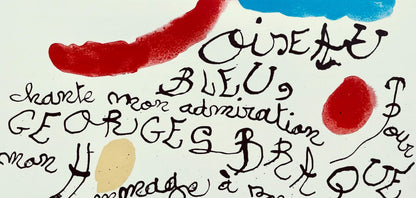 OiSEAU
BLEU,
chante mon admiration pour
GEORGES BRAQUE
mon Hommage à